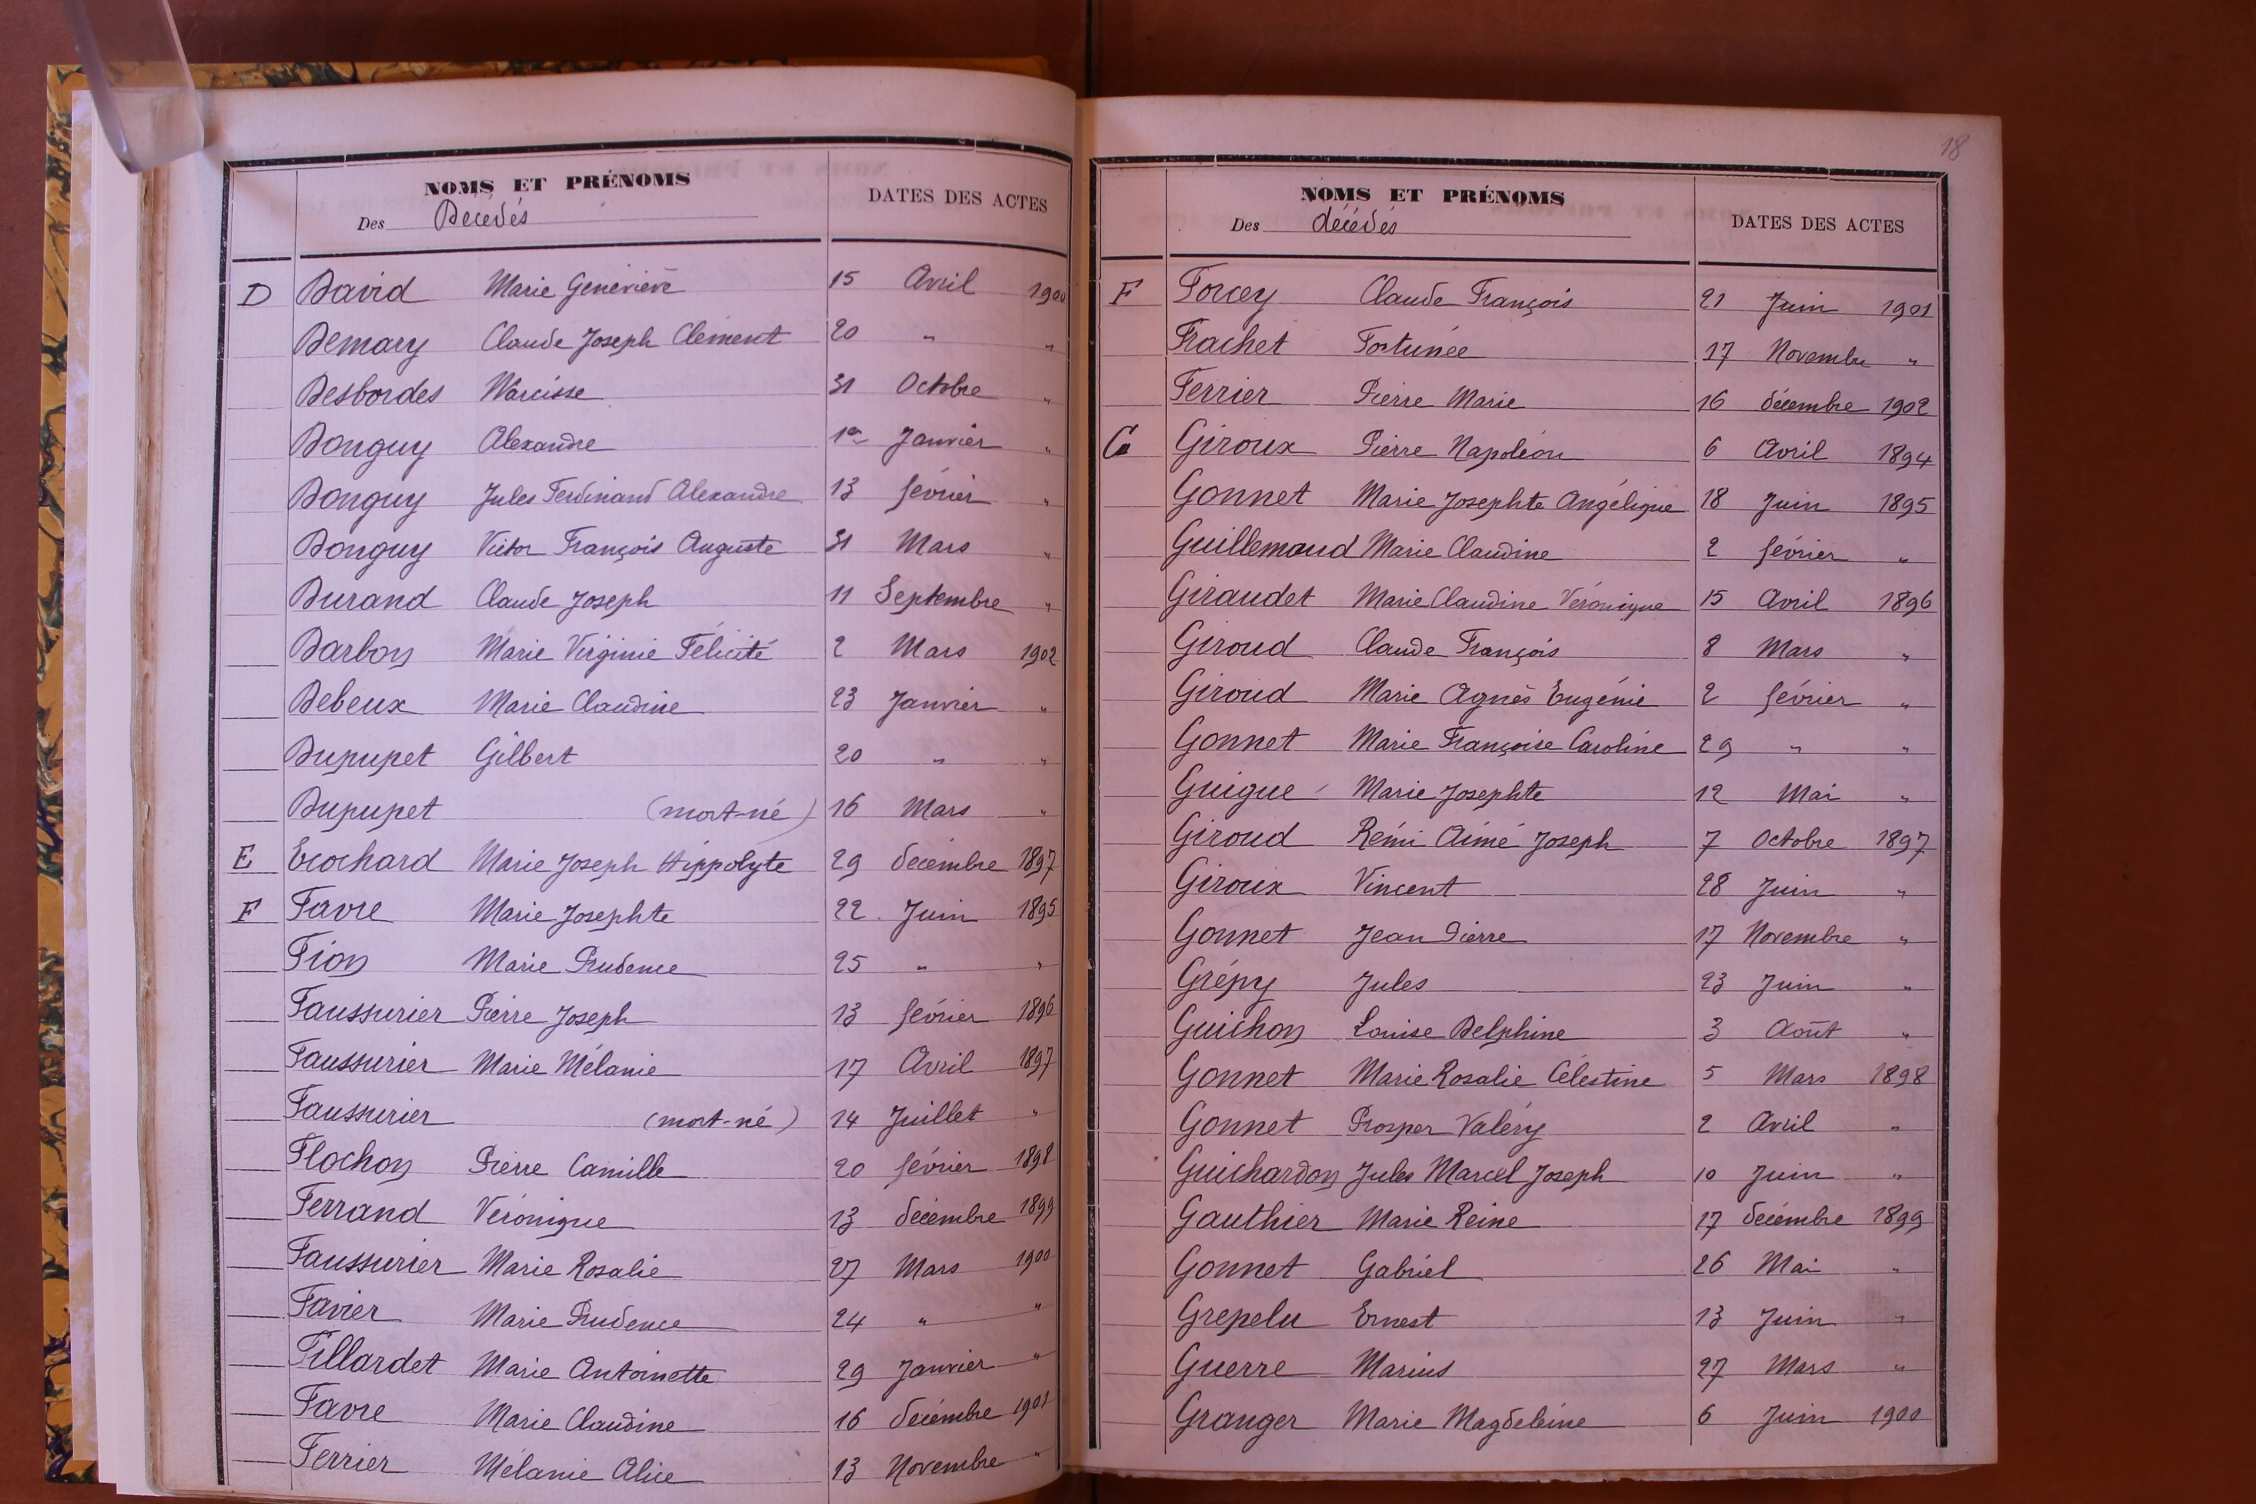 NOMS ET PRÉNOMS
Des Décédés
DATES DES ACTES
D David Marie Geneviève 15 Avril 1900
Demary Claude Joseph Clément 20 " "
Desbordes Narcisse 31 Octobre "
Donguy Alexandre 1er Janvier "
Donguy Jules Ferdinand Alexandre 13 février "
Donguy Victor François Auguste 31 Mars "
Durand Claude Joseph 11 Septembre "
Darbon Marie Virginie Félicité 2 Mars 1902
Debeux Marie Claudine 23 Janvier "
Dupupet Gilbert 20 " "
Dupupet (mort-né) 16 Mars "
E Ecochard Marie Joseph Hippolyte 29 décembre 1897
F Favre Marie Josephte 22 Juin 1895
Fion Marie Prudence 25 " "
Faussurier Pierre Joseph 13 février 1896
Faussurier Marie Mélanie 17 Avril 1897
Faussurier (mort-né) 14 Juillet "
Flochon Pierre Camille 20 février 1898
Ferrand Véronique 13 décembre 1899
Faussurier Marie Rosalie 27 Mars 1900
Favier Marie Prudence 24 " "
Fillardet Marie Antoinette 29 Janvier "
Favre Marie Claudine 16 décembre 1901
Ferrier Mélanie Alice 13 Novembre "
18
NOMS ET PRÉNOMS
Des décédés
DATES DES ACTES
F Forcey Claude François 21 Juin 1901
Frachet Fortunée 17 Novembre "
Ferrier Pierre Marie 16 décembre 1902
G Giroux Pierre Napoléon 6 Avril 1894
Gonnet Marie Josephte Angélique 18 Juin 1895
Guillemaud Marie Claudine 2 février "
Giraudet Marie Claudine Véronique 15 Avril 1896
Giroud Claude François 8 Mars "
Giroud Marie Agnès Eugénie 2 février "
Gonnet Marie Françoise Caroline 29 " "
Guigue Marie Josephte 12 Mai "
Giroud Rémi Aimé Joseph 7 Octobre 1897
Giroux Vincent 28 Juin "
Gonnet Jean Pierre 17 Novembre "
Grépy Jules 23 Juin "
Guichon Louise Delphine 3 Août "
Gonnet Marie Rosalie Célestine 5 Mars 1898
Gonnet Prosper Valéry 2 Avril "
Guichardon Jules Marcel Joseph 10 Juin "
Gauthier Marie Reine 17 décembre 1899
Gonnet Gabriel 26 Mai "
Grepelu Ernest 13 Juin "
Guerre Marius 27 Mars "
Granger Marie Magdeleine 6 Juin 1900